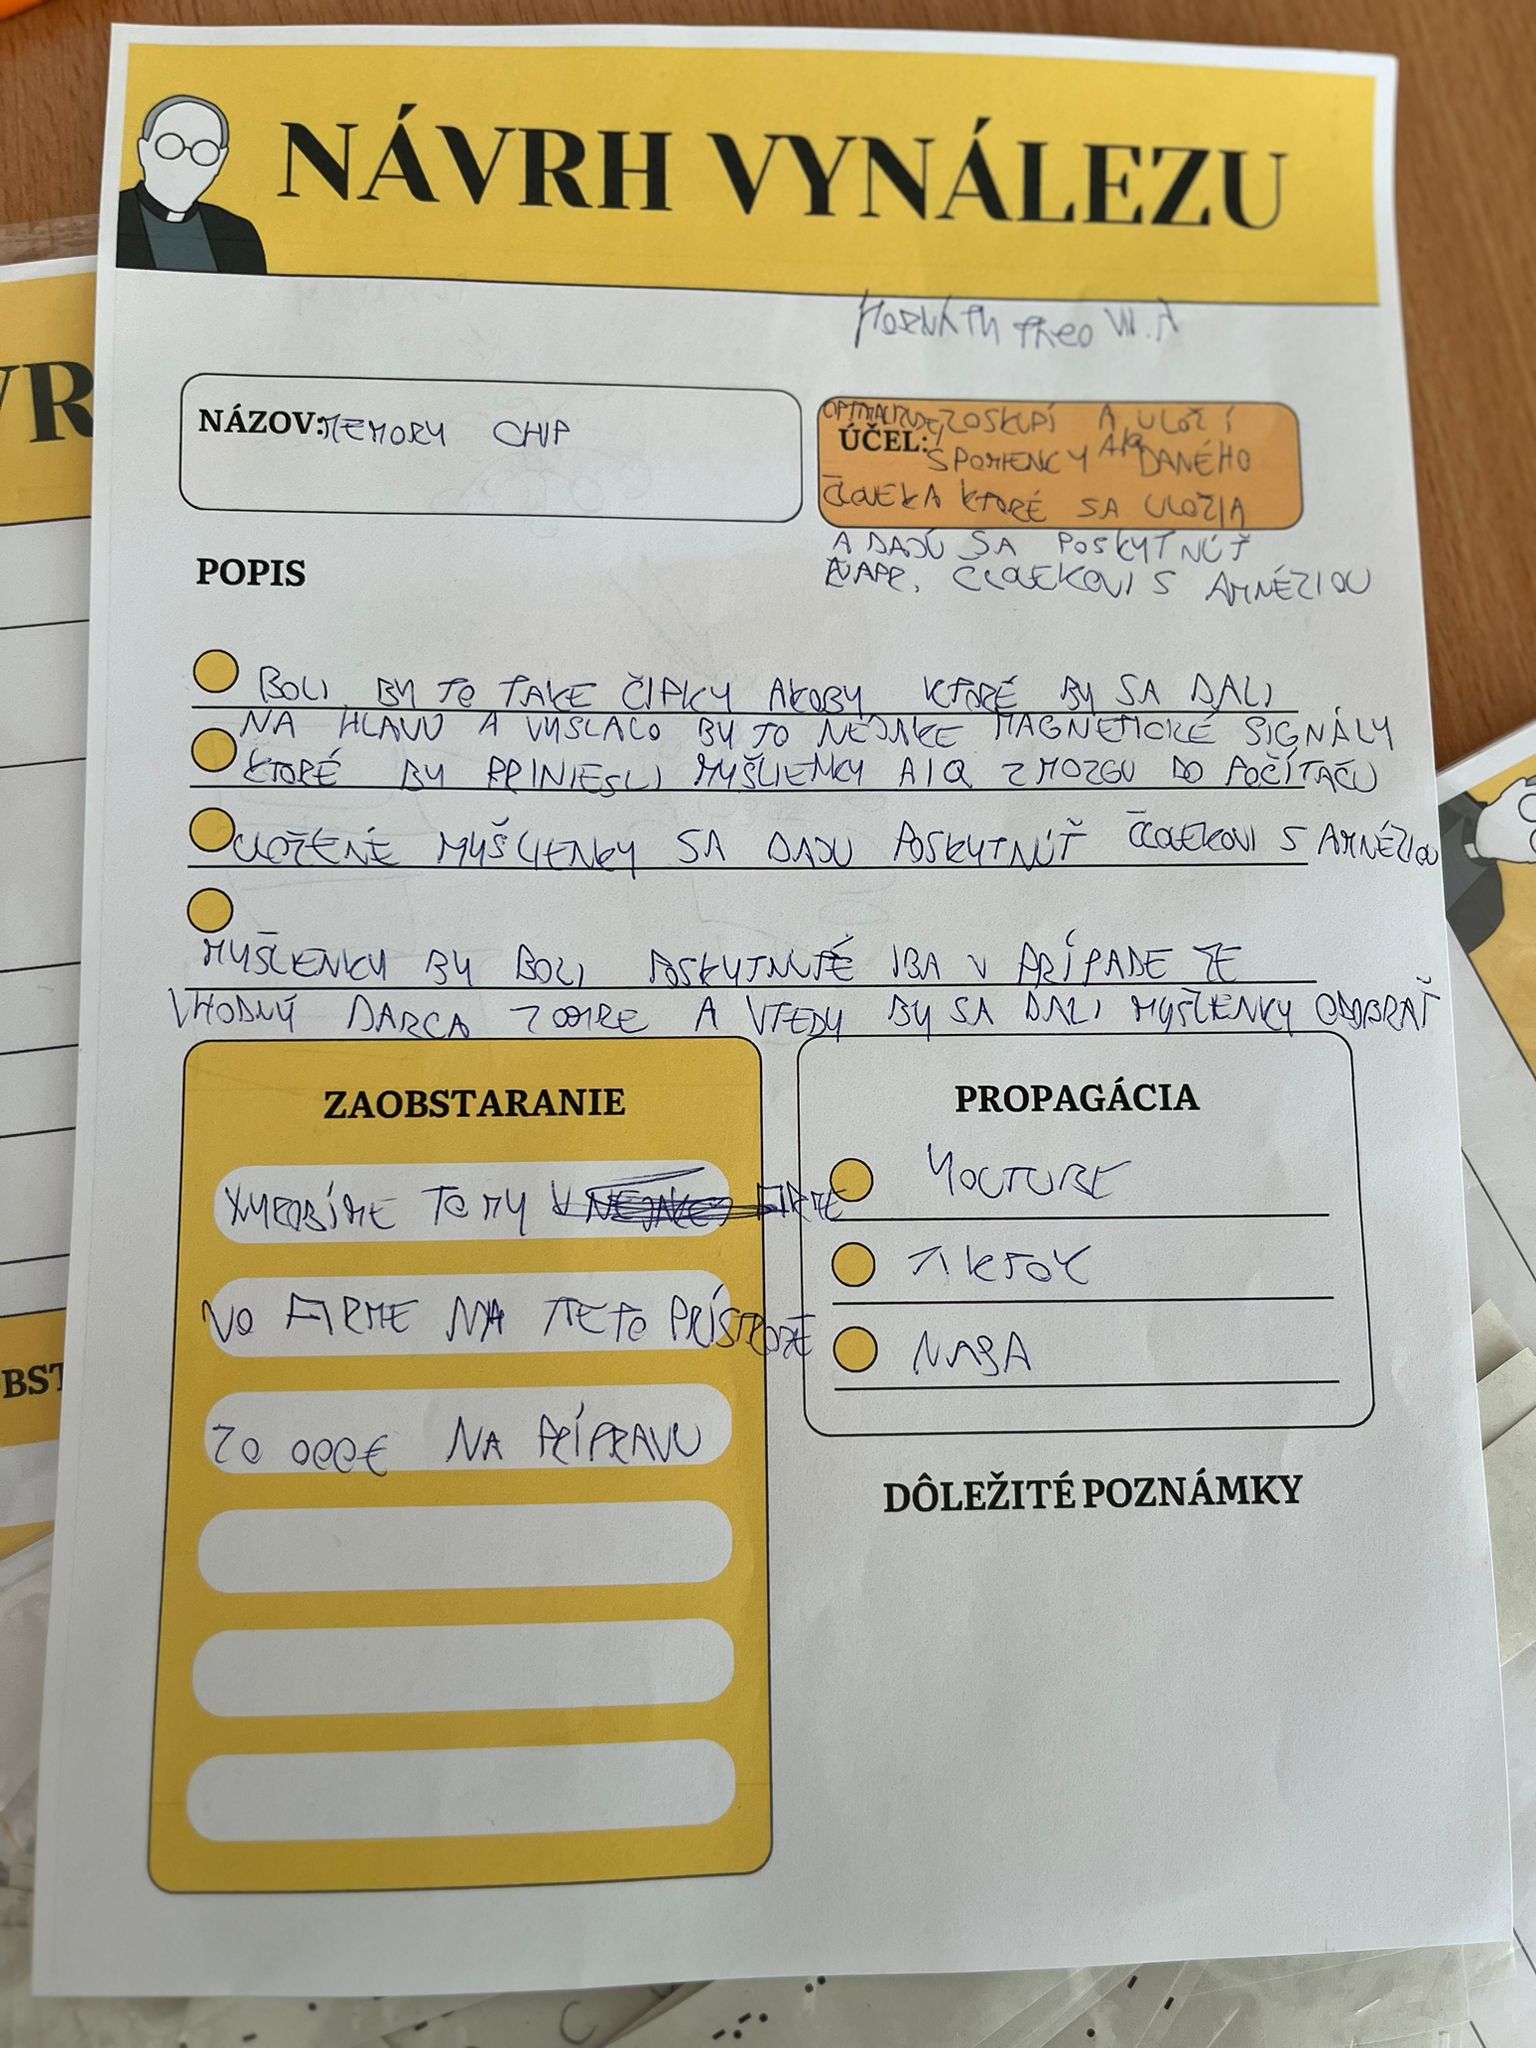 NÁVRH VYNÁLEZU
HORVÁTH THEO VII.A
NÁZOV: MEMORY CHIP
ZOSKUPÍ A ULOŽÍ
ÚČEL: SPOMIENKY A IQ DANÉHO
ČLOVEKA KTORÉ SA ULOŽIA
A DAJÚ SA POSKYTNÚŤ
NAPR. ČLOVEKOVI S AMNÉZIOU
POPIS
BOLI BY TO TAKE ČIPKY AKOBY KTORÉ BY SA DALI
NA HLAVU A VYSLALO BY TO NEJAKE MAGNETICKÉ SIGNÁLY
KTORÉ BY PRINIESLI MYŠLIENKY A IQ Z MOZGU DO POČÍTAČU
ULOŽENÉ MYŠLIENKY SA DAJU POSKYTNÚŤ ČLOVEKOVI S AMNÉZIOU
MYŠLIENKY BY BOLI POSKYTNUTÉ IBA V PRÍPADE ZE
VHODNÝ DARCA ZOMRE A VTEDY BY SA DALI MYŠLIENKY ODOBRAŤ
ZAOBSTARANIE
VYROBÍME TO MY V FIRME
VO FIRME NA TIETO PRÍSTROJE
20 000€ NA PRÍPRAVU
PROPAGÁCIA
YOUTUBE
TIKTOK
NASA
DÔLEŽITÉ POZNÁMKY
VR
OBST